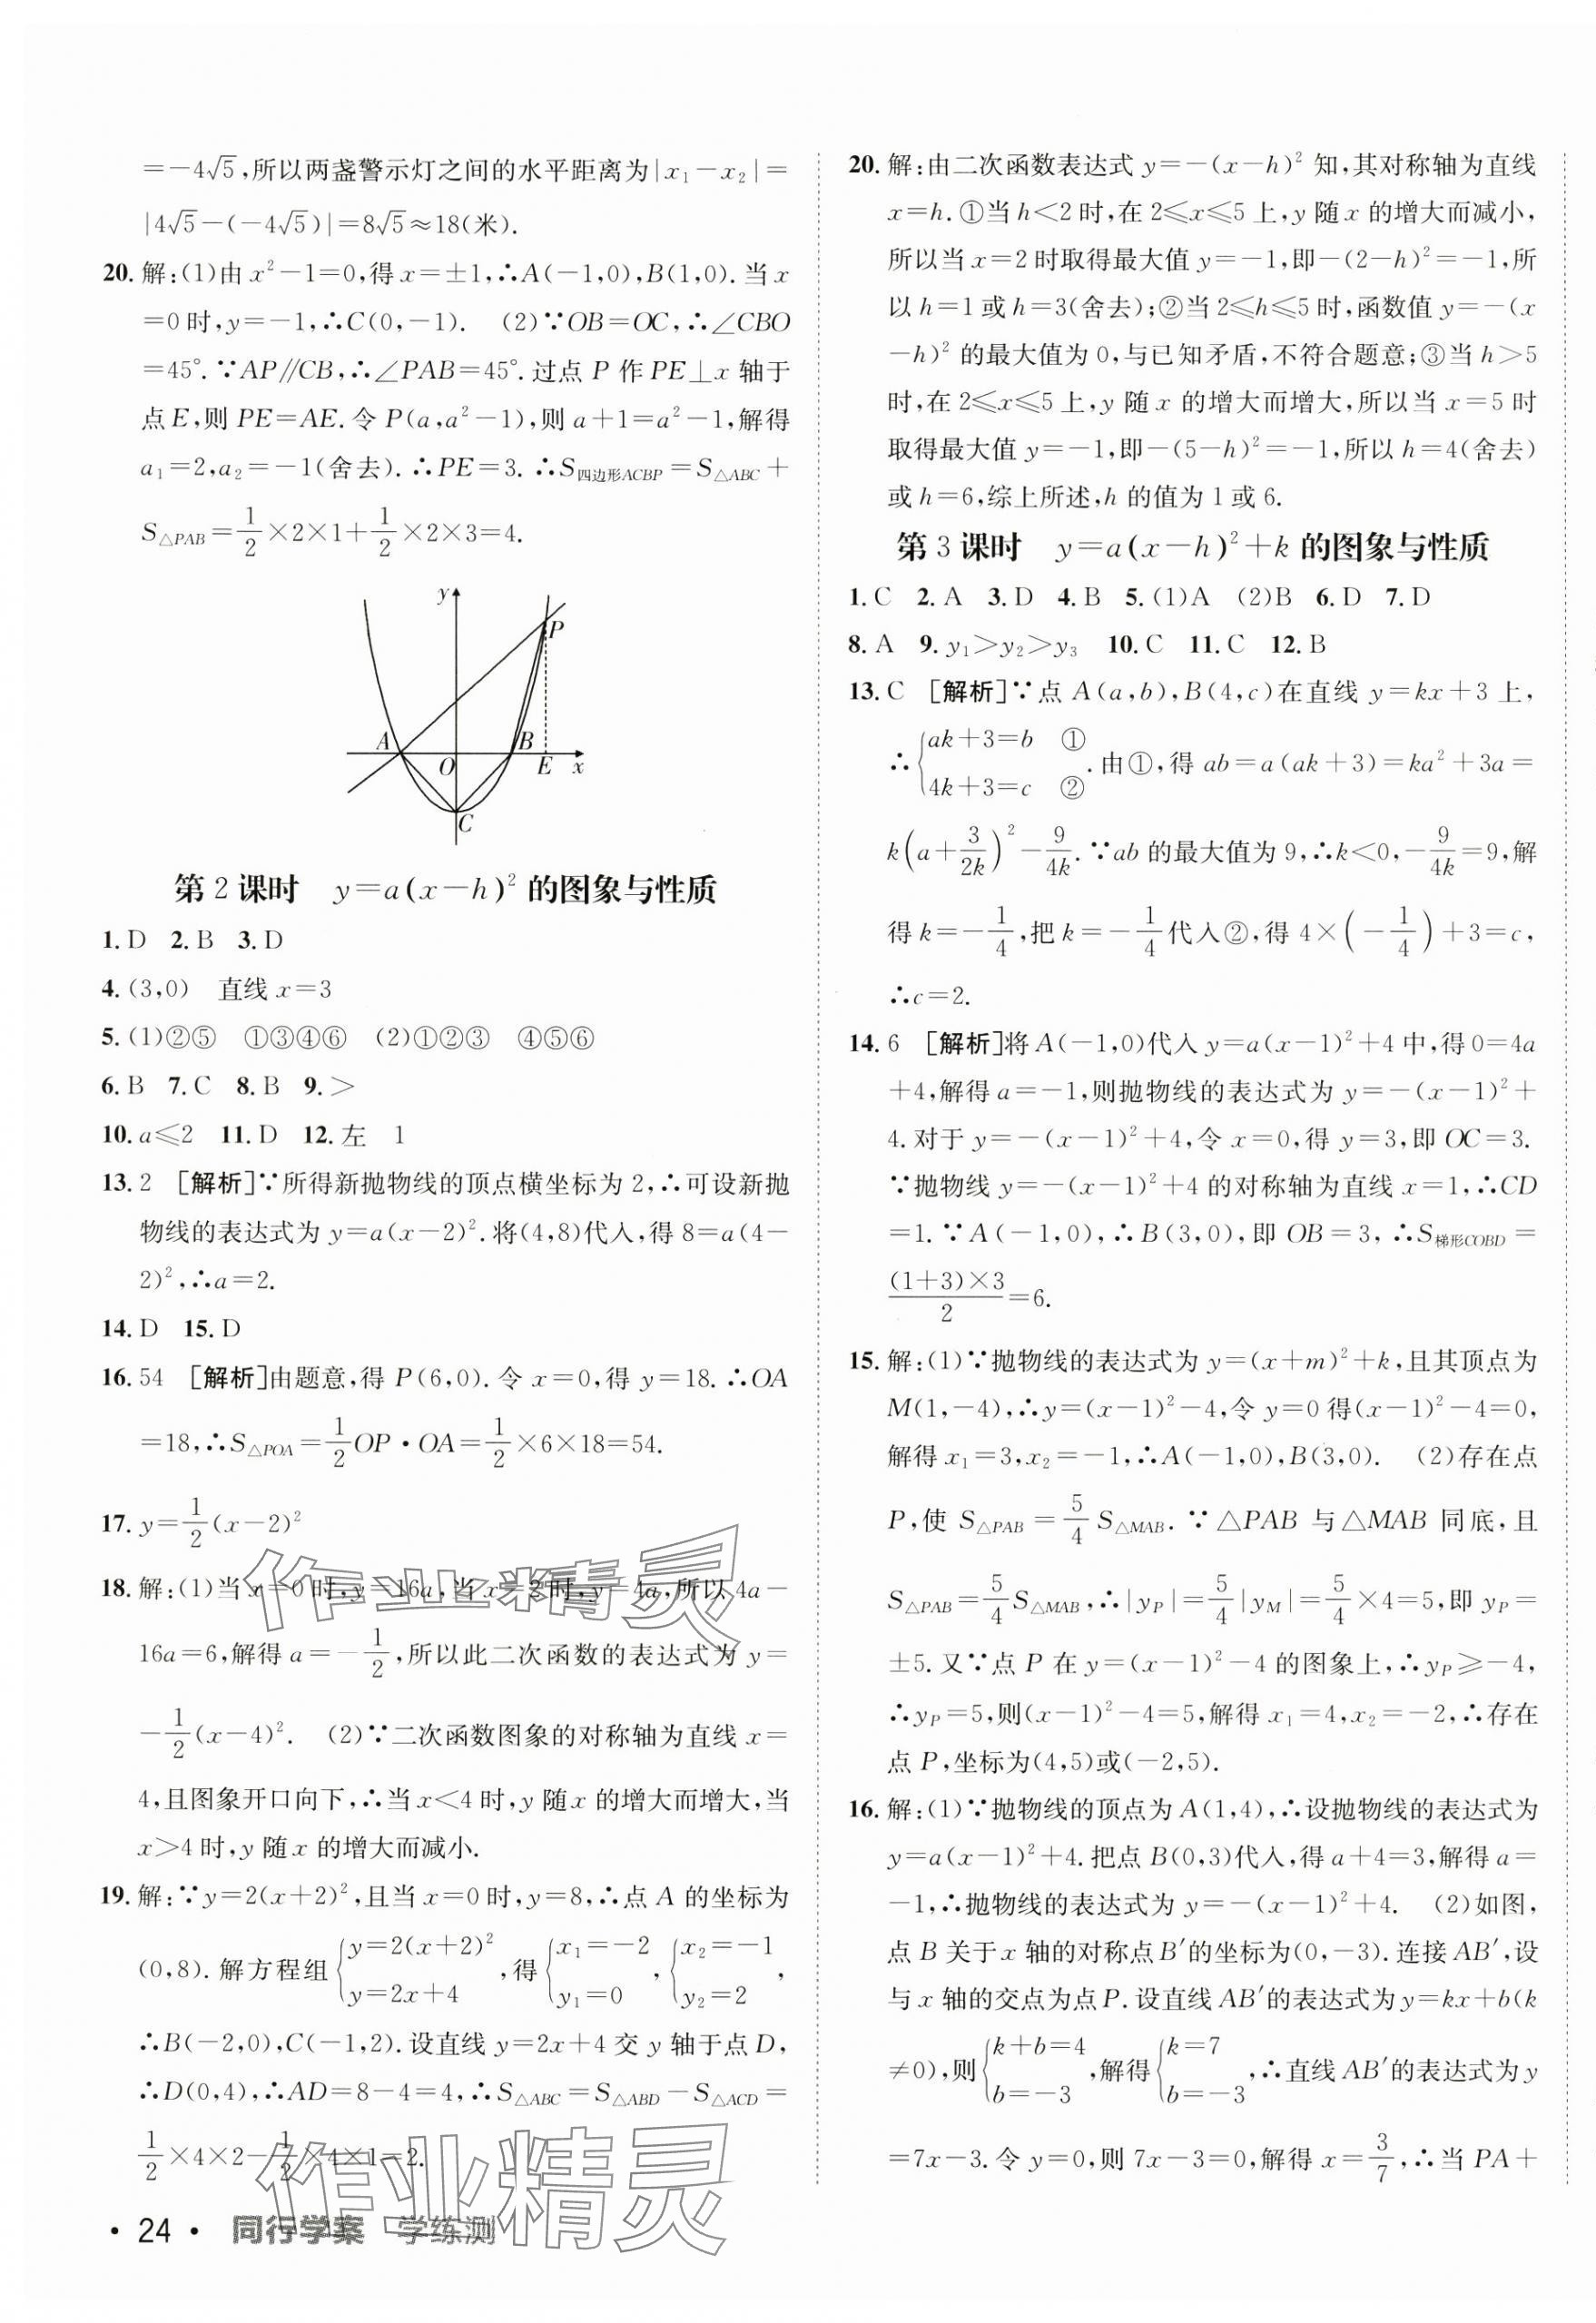 =-4√5,所以两盏警示灯之间的水平距离为|x₁-x₂|=
|4√5-(-4√5)|=8√5≈18(米).
20. 解:(1)由 x²-1=0,得 x=±1,∴A(-1,0),B(1,0). 当 x
=0 时,y=-1,∴C(0,-1). (2)∵OB=OC,∴∠CBO
=45°. ∵AP∥CB,∴∠PAB=45°. 过点 P 作 PE⊥x 轴于
点 E,则 PE=AE. 令 P(a,a²-1),则 a+1=a²-1,解得
a₁=2,a₂=-1(舍去). ∴PE=3. ∴S四边形ACBP=S△ABC+
S△PAB=1/2×2×1+1/2×2×3=4.
y
P
A
O
B
E
x
C
第 2 课时 y=a(x-h)² 的图象与性质
1. D 2. B 3. D
4. (3,0) 直线 x=3
5. (1)②⑤ ①③④⑥ (2)①②③ ④⑤⑥
6. B 7. C 8. B 9. >
10. a≤2 11. D 12. 左 1
13. 2 [解析]∵所得新抛物线的顶点横坐标为 2,∴可设新抛
物线的表达式为 y=a(x-2)². 将(4,8)代入,得 8=a(4-
2)²,∴a=2.
14. D 15. D
16. 54 [解析]由题意,得 P(6,0). 令 x=0,得 y=18. ∴OA
=18,∴S△POA=1/2OP·OA=1/2×6×18=54.
17. y=1/2(x-2)²
18. 解:(1)当 x=0 时,y=16a,当 x=2 时,y=4a,所以 4a-
16a=6,解得 a=-1/2,所以此二次函数的表达式为 y=
-1/2(x-4)². (2)∵二次函数图象的对称轴为直线 x=
4,且图象开口向下,∴当 x<4 时,y 随 x 的增大而增大,当
x>4 时,y 随 x 的增大而减小.
19. 解:∵y=2(x+2)²,且当 x=0 时,y=8,∴点 A 的坐标为
(0,8). 解方程组{y=2(x+2)² y=2x+4,得{x₁=-2 y₁=0,{x₂=-1 y₂=2,
∴B(-2,0),C(-1,2). 设直线 y=2x+4 交 y 轴于点 D,
∴D(0,4),∴AD=8-4=4,∴S△ABC=S△ABD-S△ACD=
1/2×4×2-1/2×4×1=2.
作业精灵
作业精灵
· 24 · 同行学案 学练测
20. 解:由二次函数表达式 y=-(x-h)² 知,其对称轴为直线
x=h. ①当 h<2 时,在 2≤x≤5 上,y 随 x 的增大而减小,
所以当 x=2 时取得最大值 y=-1,即-(2-h)²=-1,所
以 h=1 或 h=3(舍去);②当 2≤h≤5 时,函数值 y=-(x
-h)² 的最大值为 0,与已知矛盾,不符合题意;③当 h>5
时,在 2≤x≤5 上,y 随 x 的增大而增大,所以当 x=5 时
取得最大值 y=-1,即-(5-h)²=-1,所以 h=4(舍去)
或 h=6,综上所述,h 的值为 1 或 6.
第 3 课时 y=a(x-h)²+k 的图象与性质
1. C 2. A 3. D 4. B 5. (1)A (2)B 6. D 7. D
8. A 9. y₁>y₂>y₃ 10. C 11. C 12. B
13. C [解析]∵点 A(a,b),B(4,c)在直线 y=kx+3 上,
∴{ak+3=b ① 4k+3=c ②. 由①,得 ab=a(ak+3)=ka²+3a=
k(a+3/2k)²-9/4k. ∵ab 的最大值为 9,∴k<0,-9/4k=9,解
得 k=-1/4,把 k=-1/4代入②,得 4×(-1/4)+3=c,
∴c=2.
14. 6 [解析]将 A(-1,0)代入 y=a(x-1)²+4 中,得 0=4a
+4,解得 a=-1,则抛物线的表达式为 y=-(x-1)²+
4. 对于 y=-(x-1)²+4,令 x=0,得 y=3,即 OC=3.
∵抛物线 y=-(x-1)²+4 的对称轴为直线 x=1,∴CD
=1. ∵A(-1,0),∴B(3,0),即 OB=3,∴S梯形COBD=
(1+3)×3/2=6.
15. 解:(1)∵抛物线的表达式为 y=(x+m)²+k,且其顶点为
M(1,-4),∴y=(x-1)²-4,令 y=0 得(x-1)²-4=0,
解得 x₁=3,x₂=-1,∴A(-1,0),B(3,0). (2)存在点
P,使 S△PAB=5/4S△MAB. ∵△PAB 与△MAB 同底,且
S△PAB=5/4S△MAB,∴|yP|=5/4|yM|=5/4×4=5,即 yP=
±5. 又∵点 P 在 y=(x-1)²-4 的图象上,∴yP≥-4,
∴yP=5,则(x-1)²-4=5,解得 x₁=4,x₂=-2,∴存在
点 P,坐标为(4,5)或(-2,5).
16. 解:(1)∵抛物线的顶点为 A(1,4),∴设抛物线的表达式为
y=a(x-1)²+4. 把点 B(0,3)代入,得 a+4=3,解得 a=
-1,∴抛物线的表达式为 y=-(x-1)²+4. (2)如图,
点 B 关于 x 轴的对称点 B′的坐标为(0,-3). 连接 AB′,设
与 x 轴的交点为点 P. 设直线 AB′的表达式为 y=kx+b(k
≠0),则{k+b=4 b=-3,解得{k=7 b=-3,∴直线 AB′的表达式为 y
=7x-3. 令 y=0,则 7x-3=0,解得 x=3/7,∴当 PA+